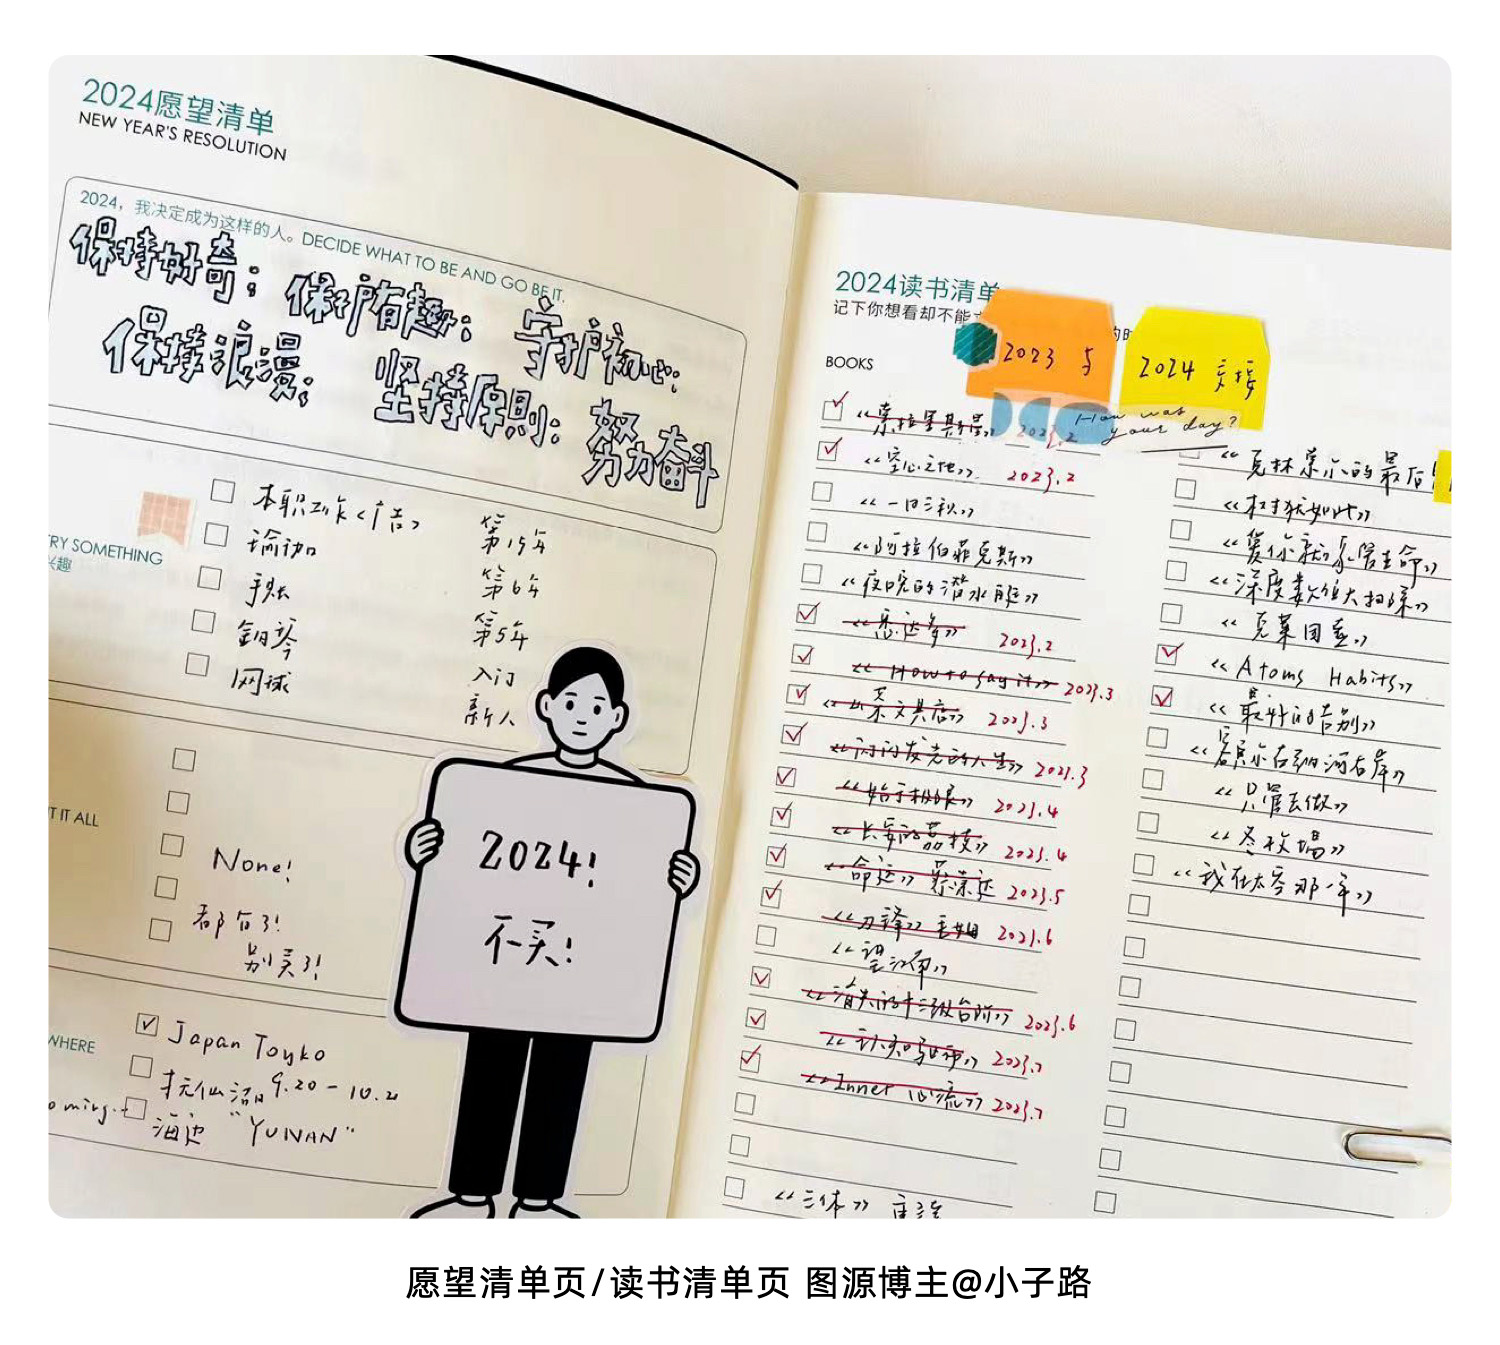 2024愿望清单
NEW YEAR'S RESOLUTION
2024，我决定成为这样的人。DECIDE WHAT TO BE AND GO BE IT.
保持好奇；保护有趣；守护初心；
保持浪漫；坚持原则；努力奋斗
RY SOMETHING
兴趣
本职工作<广告> 第15年
瑜伽 第6年
手账 第5年
钢琴 入门
网球 新人
T IT ALL
None!
都有了!
别买了!
WHERE
Japan Toyko
抚仙湖 9.20-10.2
海边 "YUNAN"
2024!
不买!
2024读书清单
记下你想看却不能
的时
BOOKS
2023 与
2024 交接
How was
your day?
《索拉里斯星》 2023.2
《空心之地》 2023.2
《一日三秋》
《阿拉伯菲克斯》
《夜晚的潜水艇》
《悉达多》 2023.2
《How to say it》 2023.3
《山茶文具店》 2023.3
《闪闪发光的人生》 2023.3
《始于极限》 2023.4
《长安的荔枝》 2023.4
《命运》 蔡崇达 2023.5
《刀锋》 毛姆 2023.6
《望江南》
《消失的十三级台阶》 2023.6
《认知驱动》 2023.7
《Inner 心流》 2023.7
《三体》
《克林索尔的最后
《村狱如此》
《爱你就像爱生命》
《深度数值大扫除》
《克莱因壶》
《Atoms Habits》
《最好的告别》
《额尔古纳河右岸》
《只管去做》
《冬牧场》
《我在岑那一年》
愿望清单页/读书清单页 图源博主@小子路